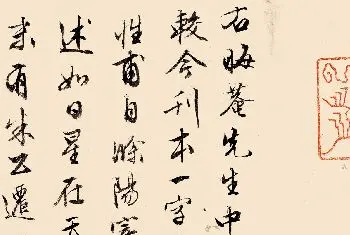 右晦菴先生中
較今刊本一字
性甫自睢陽寄
述如日星在天
来有朱公遷